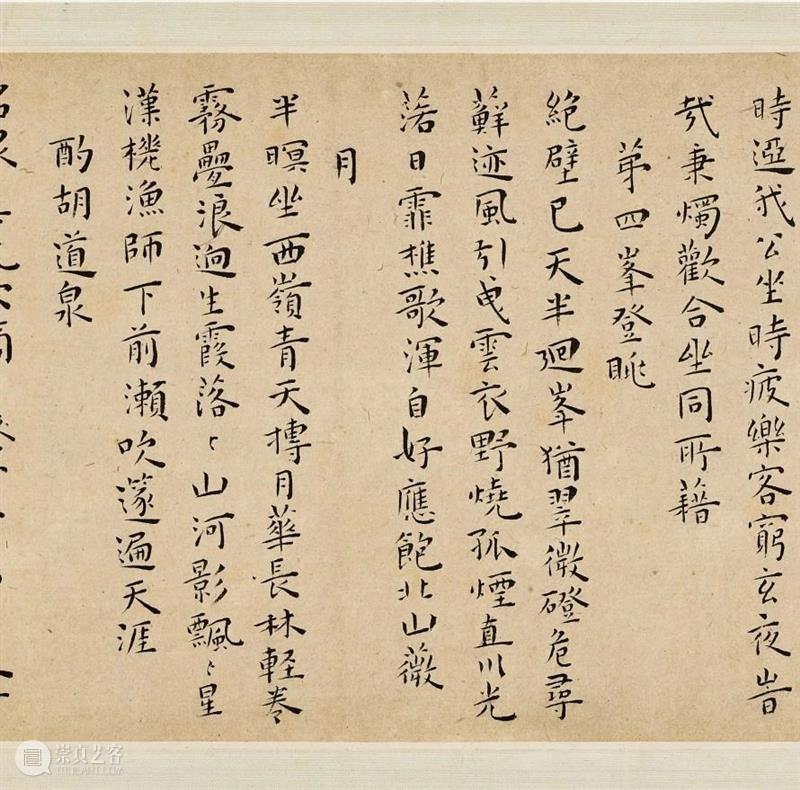 時迳我公坐時疲樂客窮玄夜旹
哉秉燭歡合坐同所藉
苐四峯登眺
絕壁已天半廻峯猶翠微磴危尋
蘚迹風引曳雲衣野燒孤煙直川光
落日霏樵歌渾自好應飽北山薇
月
半暝坐西嶺青天摶月華長林輕卷
霧疊浪逈生霞落〻山河影飄〻星
漢機漁師下前瀨吹邃遍天涯
酌胡道泉
崇真艺客
TRUEART.COM